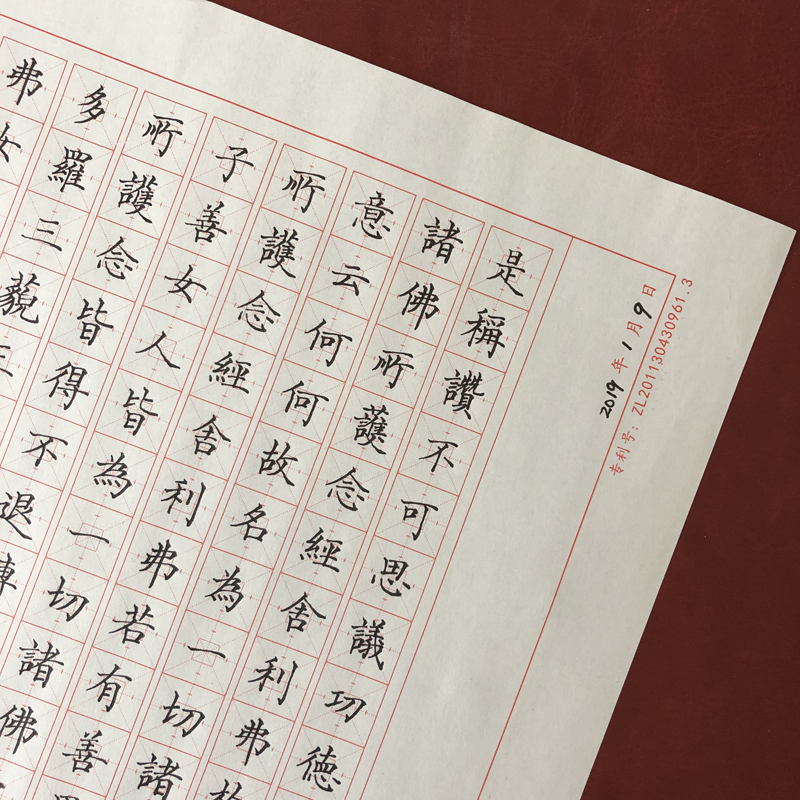 2019年1月9日
专利号：ZL201130430961.3
是稱讚不可思議功德
諸佛所護念經舍利弗於
意云何何故名為一切諸
所護念經舍利弗若有善
子善女人皆為一切諸佛
所護念皆得不退轉
多羅三藐三
弗女